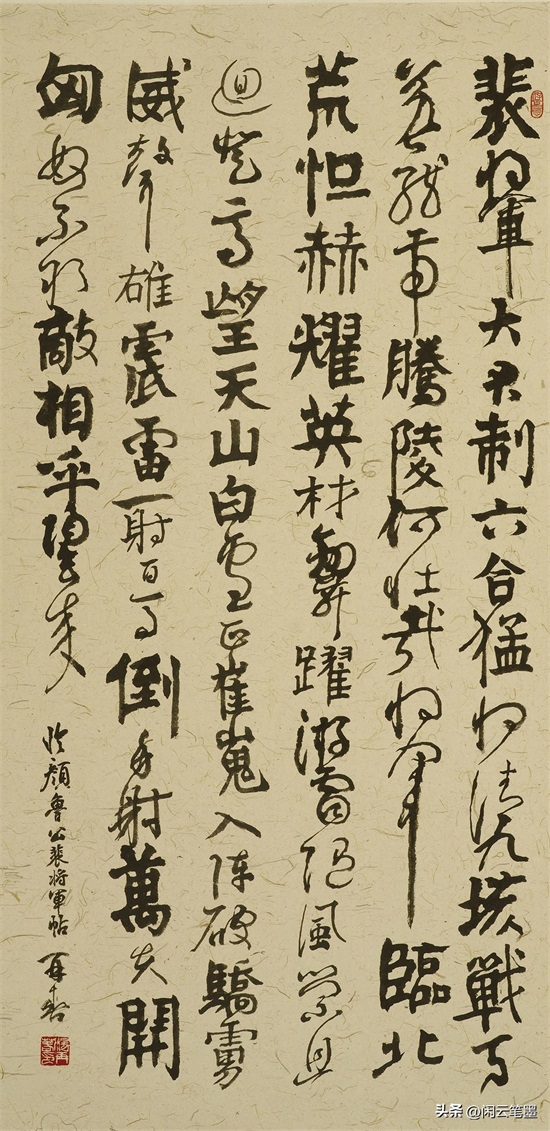 裴將軍大君制六合猛將清九垓戰馬
若龍虎騰陵何壯哉將軍臨北
荒怛赫耀英材劍舞躍游電隨風縈且
迴登高望天山白雲正崔嵬入陣破驕虜
威聲雄震雷一射百馬倒再射萬夫開
匈奴不敢敵相呼歸去來
臨顏魯公裴將軍帖
头条 @闲云笔墨